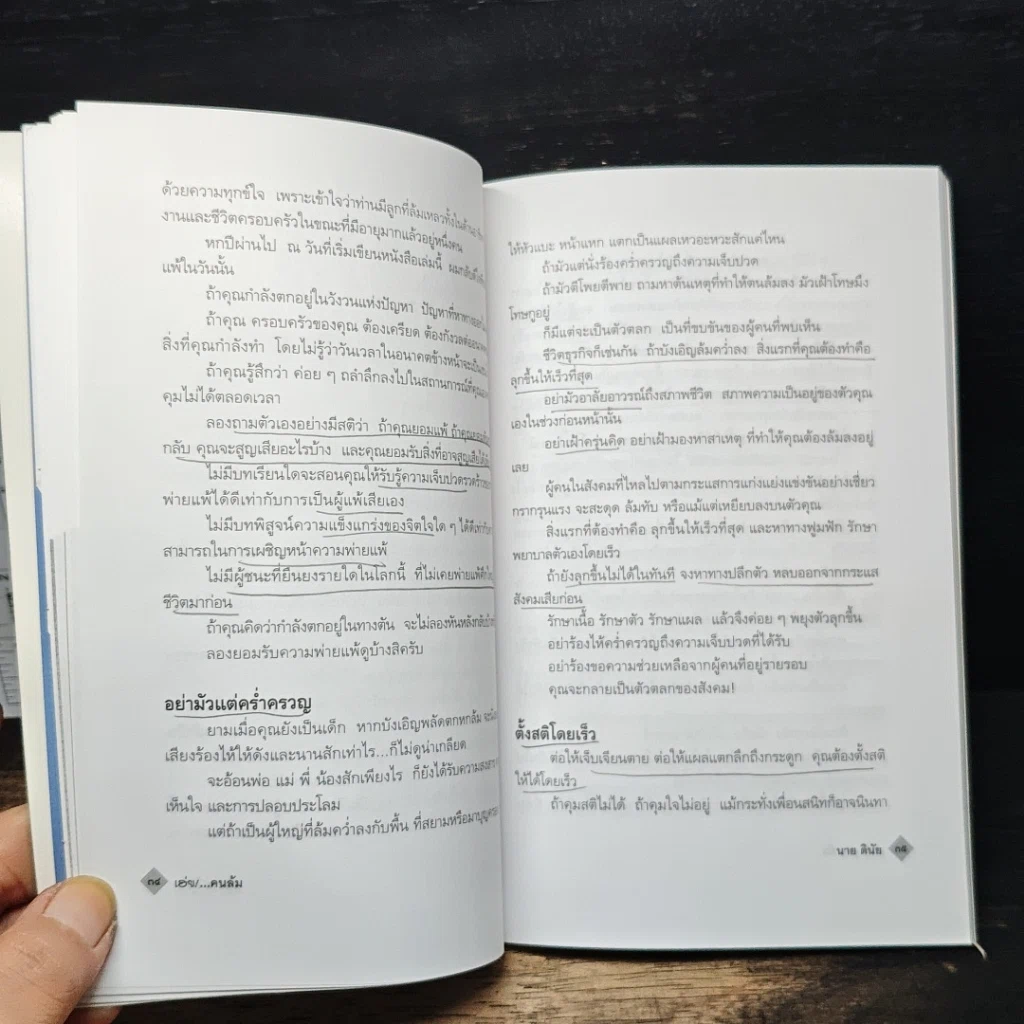 ด้วยความทุกข์ใจ เพราะเข้าใจว่าท่านมีลูกที่ล้มเหลวทั้งในด้าน
งานและชีวิตครอบครัวในขณะที่มีอายุมากแล้วอยู่หนึ่งคน
หกปีผ่านไป ณ วันที่เริ่มเขียนหนังสือเล่มนี้
แพ้ในวันนั้น
ถ้าคุณกำลังตกอยู่ในวังวนแห่งปัญหา
ถ้าคุณ ครอบครัวของคุณ ต้องเครียด
สิ่งที่คุณกำลังทำ โดยไม่รู้ว่าวันเวลาในอนาคตข้างหน้า
ถ้าคุณรู้สึกว่า ค่อย ๆ ถลำลึกลงไปในสถานการณ์ที่
คุมไม่ได้ตลอดเวลา
ลองถามตัวเองอย่างมีสติว่า ถ้าคุณยอมแพ้
กลับ คุณจะสูญเสียอะไรบ้าง และคุณยอมรับสิ่งที่อาจสูญเสีย
ไม่มีบทเรียนใดจะสอนคุณให้รับรู้ความเจ็บปวด
พ่ายแพ้ได้ดีเท่ากับการเป็นผู้แพ้เสียเอง
ไม่มีบทพิสูจน์ความแข็งแกร่งของจิตใจใด ๆ
สามารถในการเผชิญหน้าความพ่ายแพ้
ไม่มีผู้ชนะที่ยืนยงรายใดในโลกนี้ ที่ไม่เคยพ่ายแพ้
ชีวิตมาก่อน
ถ้าคุณคิดว่ากำลังตกอยู่ในทางตัน จะไม่ลองหันหลังกลับ
ลองยอมรับความพ่ายแพ้ดูบ้างสิครับ
อย่ามัวแต่คร่ำครวญ
ยามเมื่อคุณยังเป็นเด็ก หากบังเอิญพลัดตกหกล้ม
เสียงร้องไห้ให้ดังและนานสักเท่าไร...ก็ไม่ดูน่าเกลียด
จะอ้อนพ่อ แม่ พี่ น้องสักเพียงไร ก็ยังได้รับความ
เห็นใจ และการปลอบประโลม
แต่ถ้าเป็นผู้ใหญ่ที่ล้มคว่ำลงกับพื้น ที่สยามหรือมาบุญครอง
๓๘ เฮ่ย!...คนล้ม
ให้หัวแบะ หน้าแหก แตกเป็นแผลเหวอะหวะสักแค่ไหน
ถ้ามัวแต่นั่งร้องคร่ำครวญถึงความเจ็บปวด
ถ้ามัวตีโพยตีพาย ถามหาต้นเหตุที่ทำให้ตนล้มลง มัวเฝ้าโทษมึง
โทษกูอยู่
ก็มีแต่จะเป็นตัวตลก เป็นที่ขบขันของผู้คนที่พบเห็น
ชีวิตธุรกิจก็เช่นกัน ถ้าบังเอิญล้มคว่ำลง สิ่งแรกที่คุณต้องทำคือ
ลุกขึ้นให้เร็วที่สุด
อย่ามัวอาลัยอาวรณ์ถึงสภาพชีวิต สภาพความเป็นอยู่ของตัวคุณ
เองในช่วงก่อนหน้านั้น
อย่าเฝ้าครุ่นคิด อย่าเฝ้ามองหาสาเหตุ ที่ทำให้คุณต้องล้มลงอยู่
เลย
ผู้คนในสังคมที่ไหลไปตามกระแสการแก่งแย่งแข่งขันอย่างเชี่ยว
กรากรุนแรง จะสะดุด ล้มทับ หรือแม้แต่เหยียบลงบนตัวคุณ
สิ่งแรกที่ต้องทำคือ ลุกขึ้นให้เร็วที่สุด และหาทางฟูมฟัก รักษา
พยาบาลตัวเองโดยเร็ว
ถ้ายังลุกขึ้นไม่ได้ในทันที จงหาทางปลีกตัว หลบออกจากกระแส
สังคมเสียก่อน
รักษาเนื้อ รักษาตัว รักษาแผล แล้วจึงค่อย ๆ พยุงตัวลุกขึ้น
อย่าร้องไห้คร่ำครวญถึงความเจ็บปวดที่ได้รับ
อย่าร้องขอความช่วยเหลือจากผู้คนที่อยู่รายรอบ
คุณจะกลายเป็นตัวตลกของสังคม!
ตั้งสติโดยเร็ว
ต่อให้เจ็บเจียนตาย ต่อให้แผลแตกลึกถึงกระดูก คุณต้องตั้งสติ
ให้ได้โดยเร็ว
ถ้าคุมสติไม่ได้ ถ้าคุมใจไม่อยู่ แม้กระทั่งเพื่อนสนิทก็อาจนินทา
นาย ดินัย ๓๙